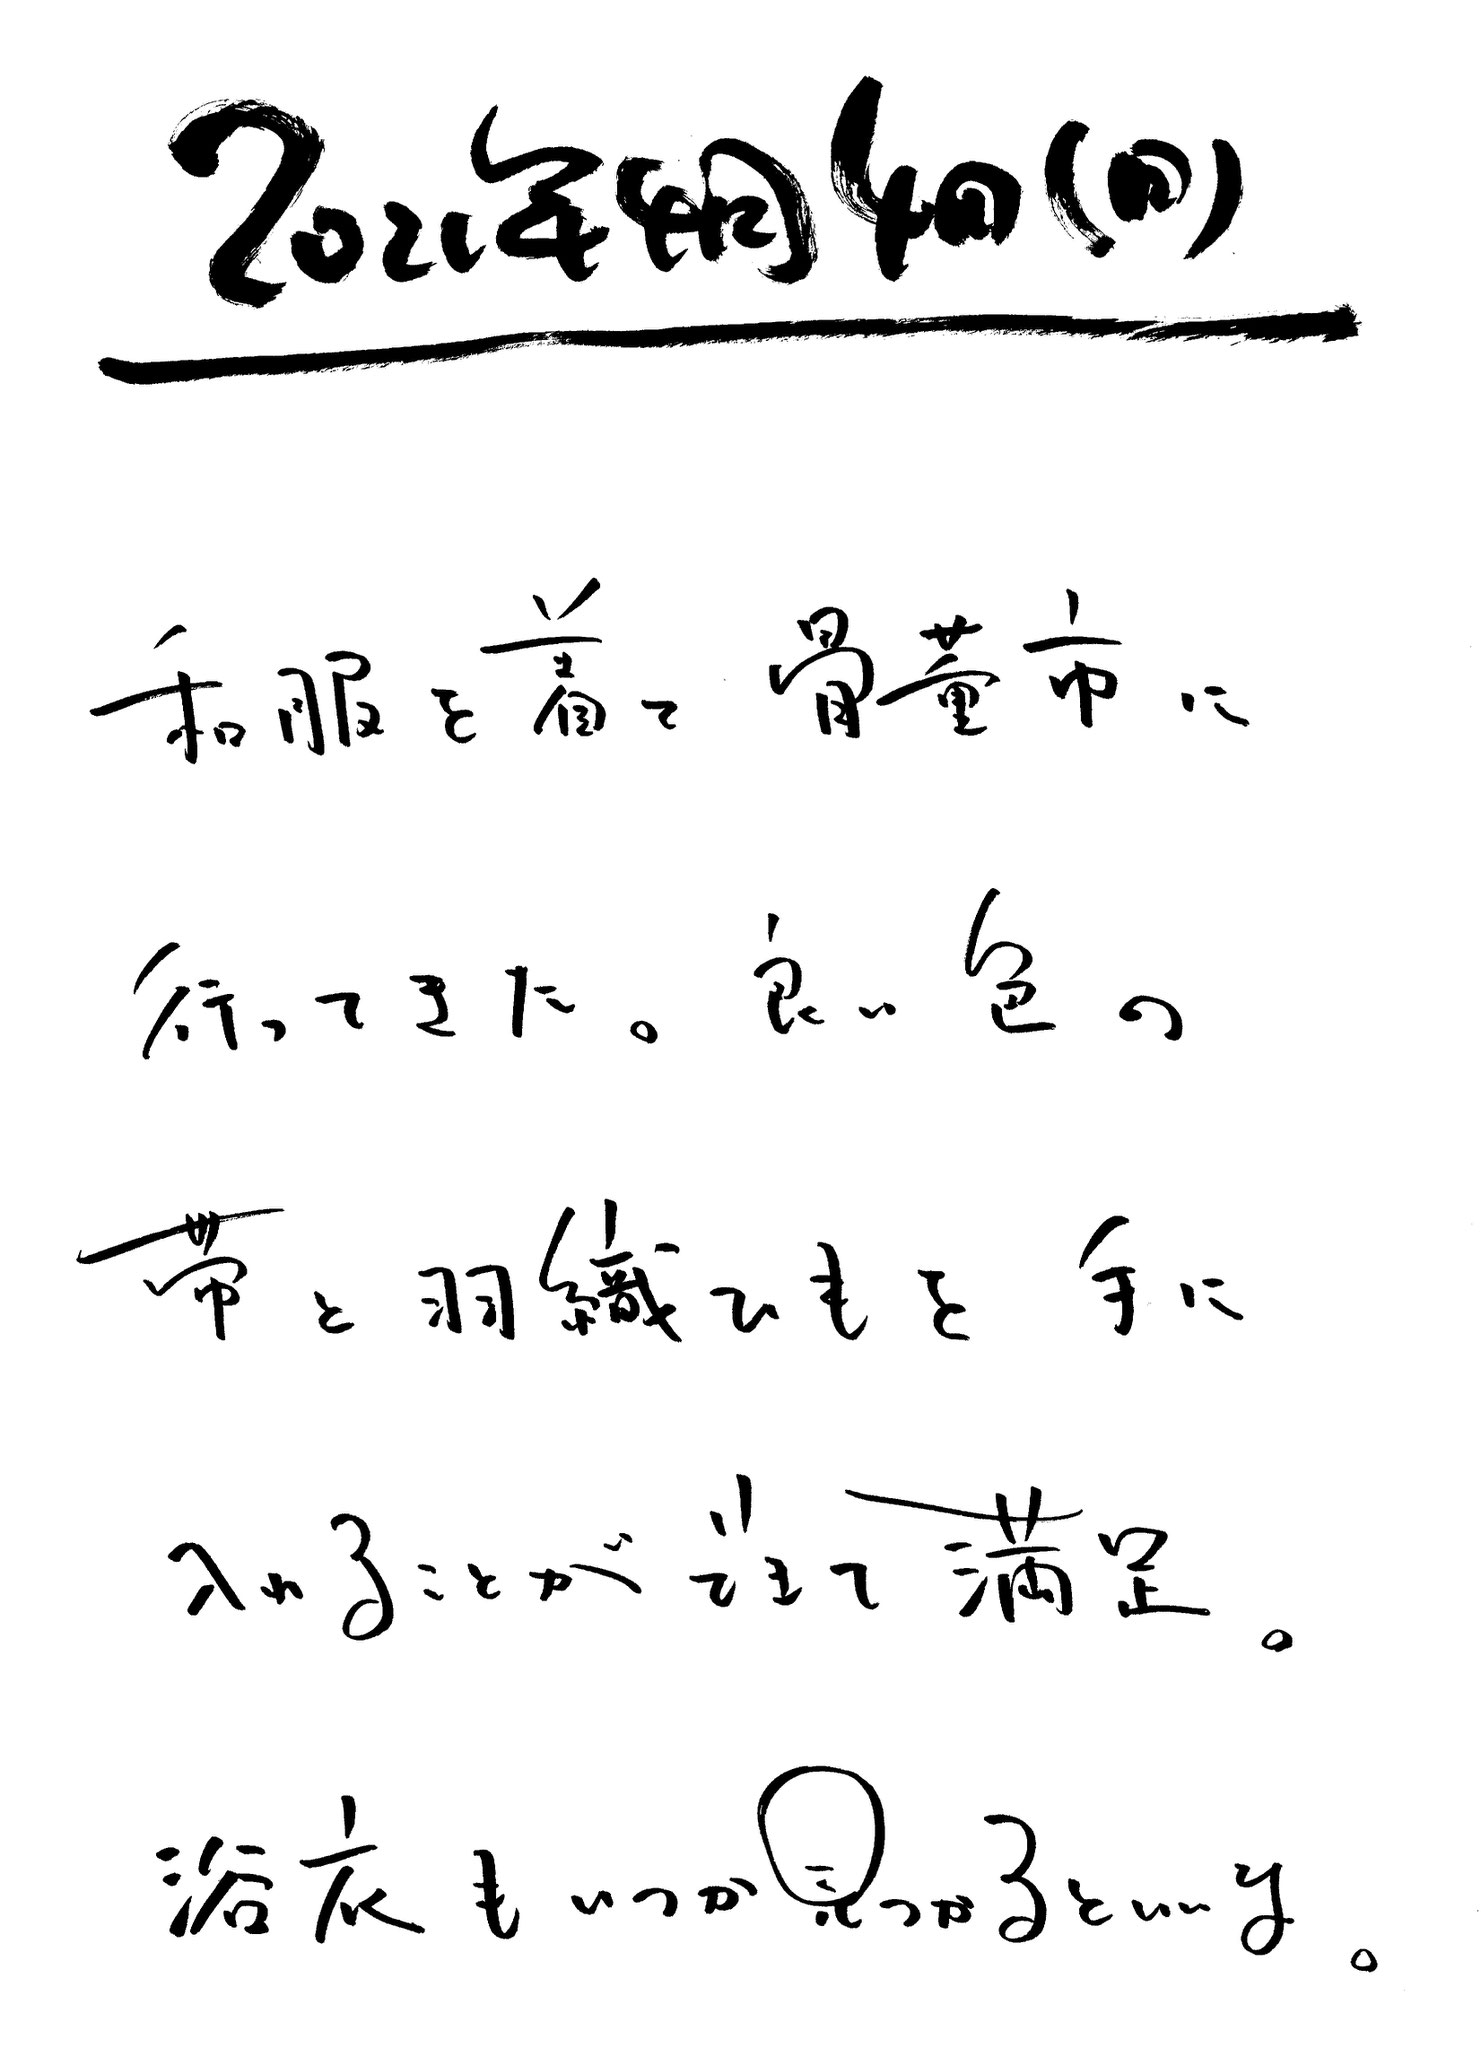 2021年4月4日(日)
和服を着て骨董市に
行ってきた。良い色の
帯と羽織ひもを手に
入れることができて満足。
浴衣もいつか見つかるといいな。